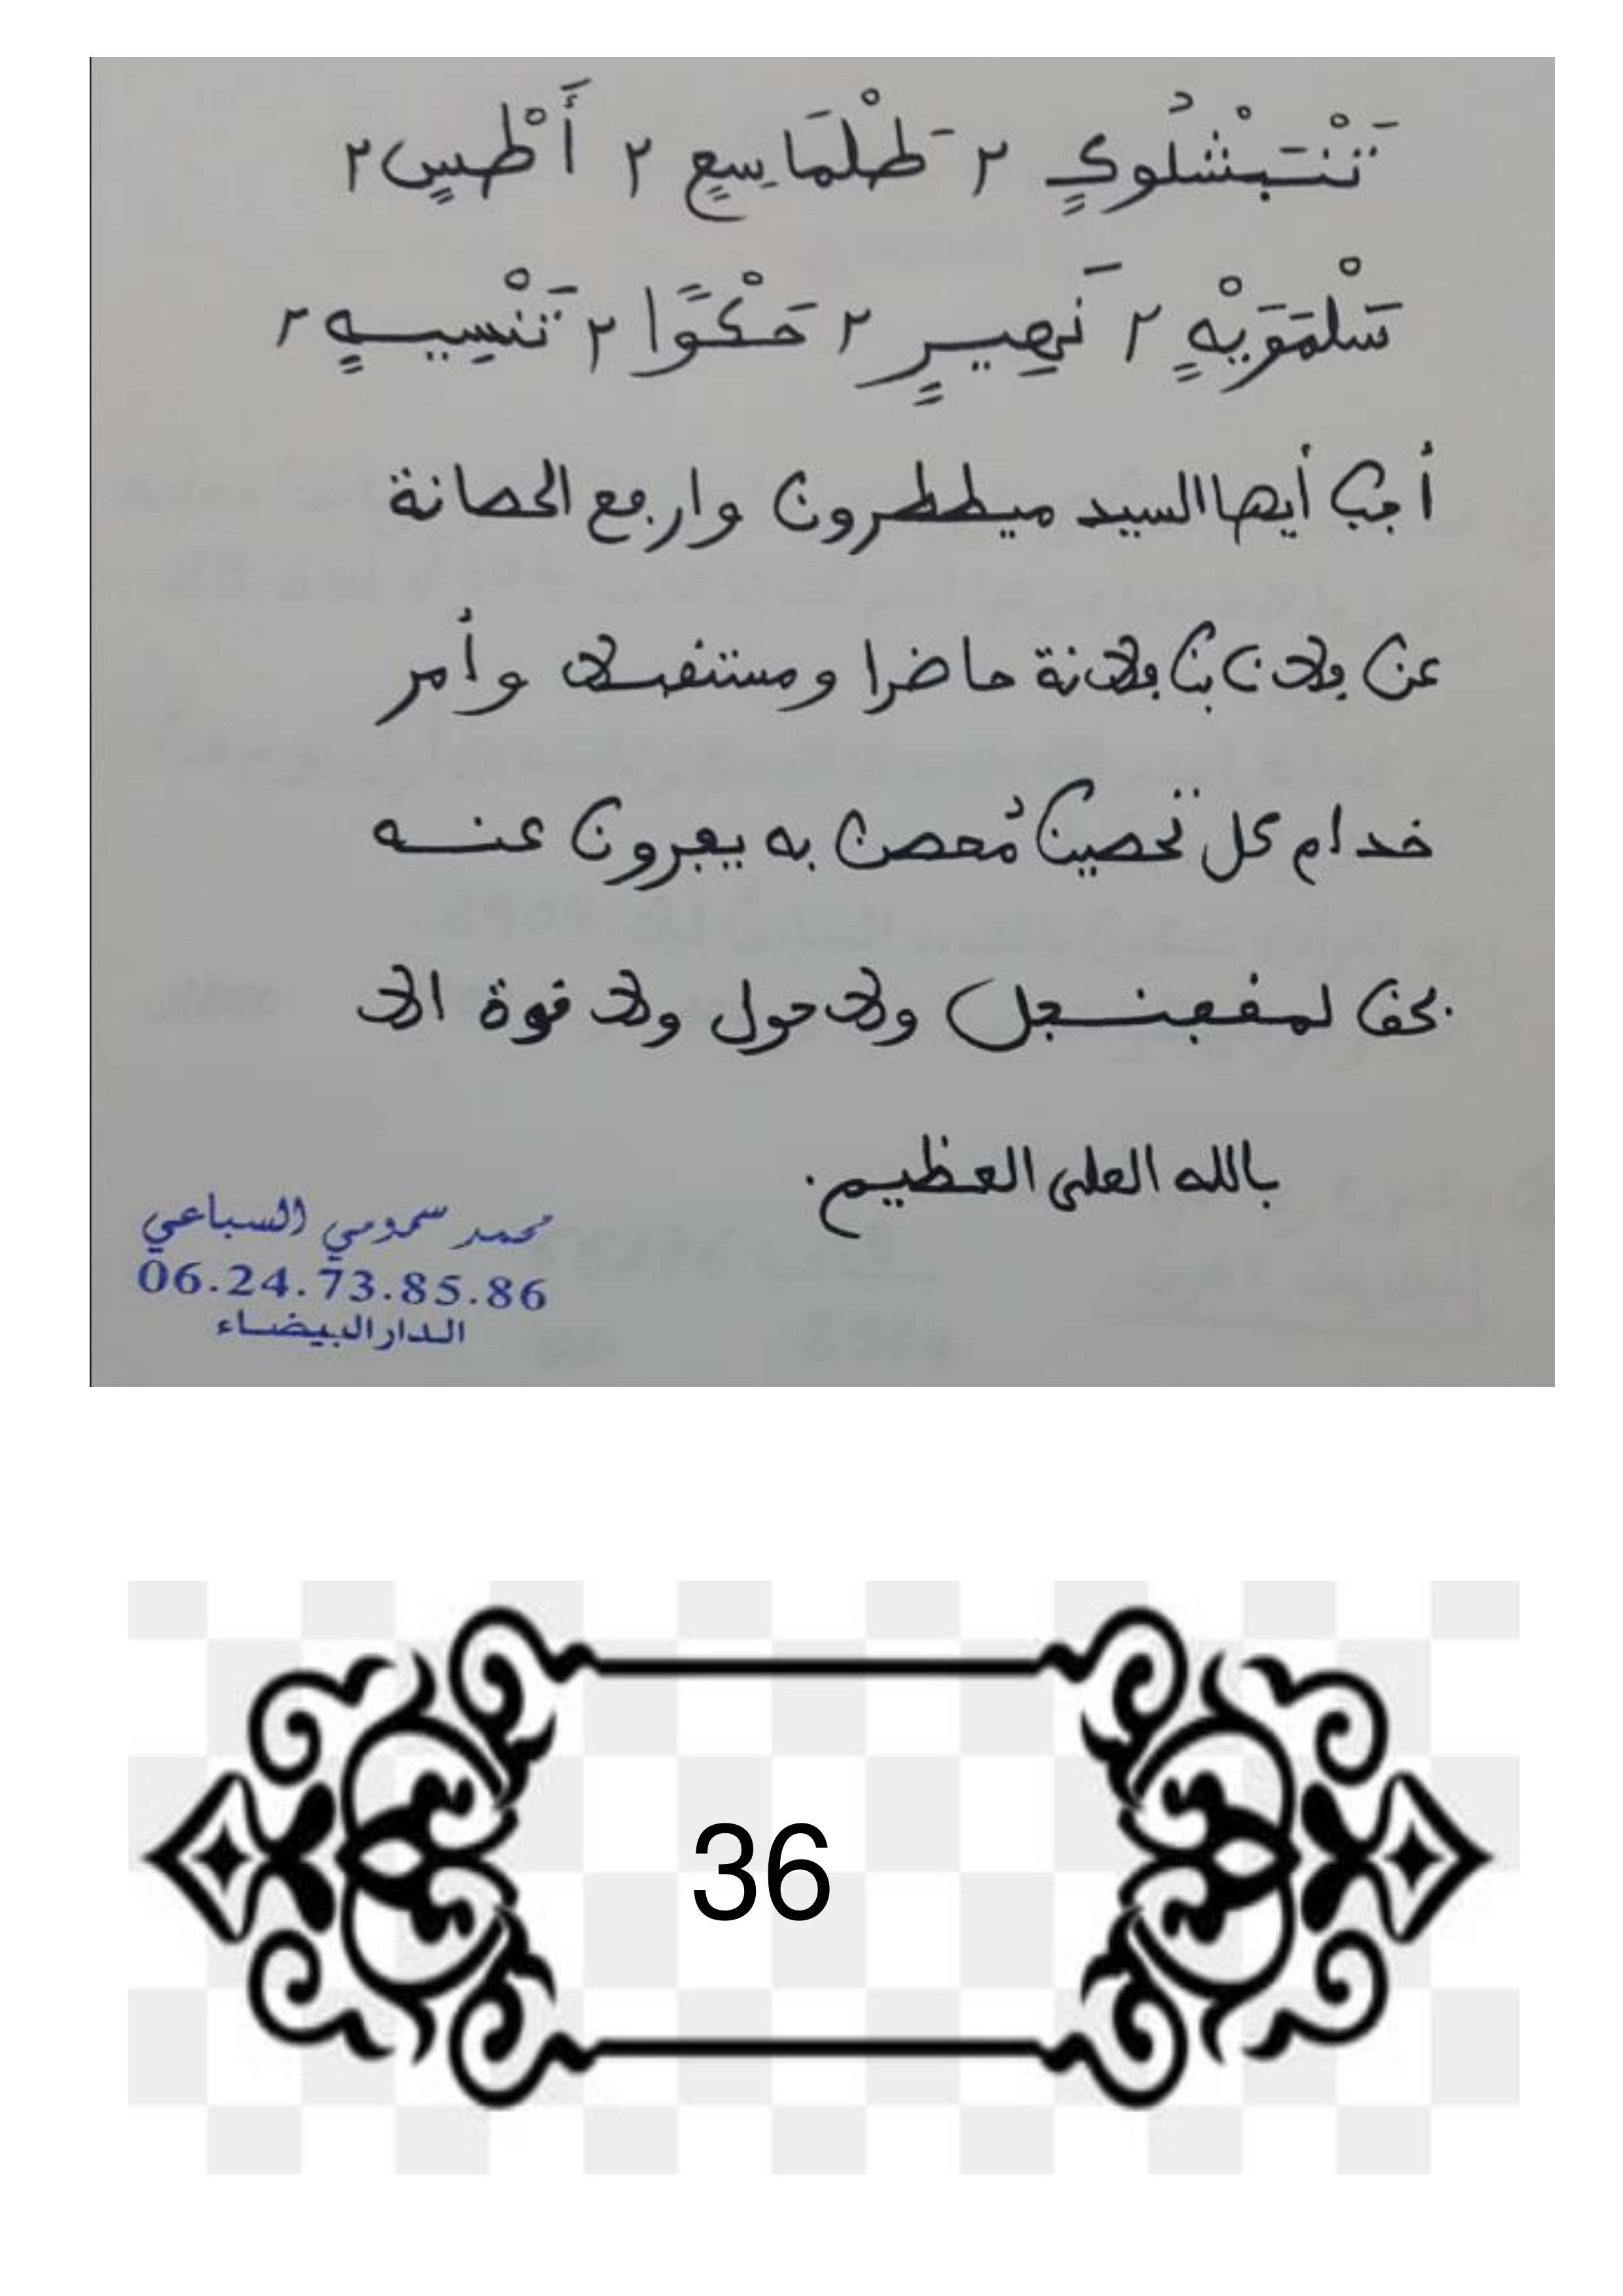 تَنْتَبْشُلوكٍ ٢ طَلْمَاسِعٍ ٢ أَطْسٍ ٢
سَلْمَوَيْهٍ ٢ نَهِيرٍ ٢ حَكْوًا ٢ تَنْسِيهٍ ٢
أجب أيها السيد ميططرون وارفع الحصانة
عن فلان بن فلانة حاضرا ومستقبلا وأمر
خدام كل تحصين مُحصن به يفرون عنه
بحق لمقفنجل ولا حول ولا قوة الا
بالله العلي العظيم.
محمد سمومي السباعي
06.24.73.85.86
الدار البيضاء
36